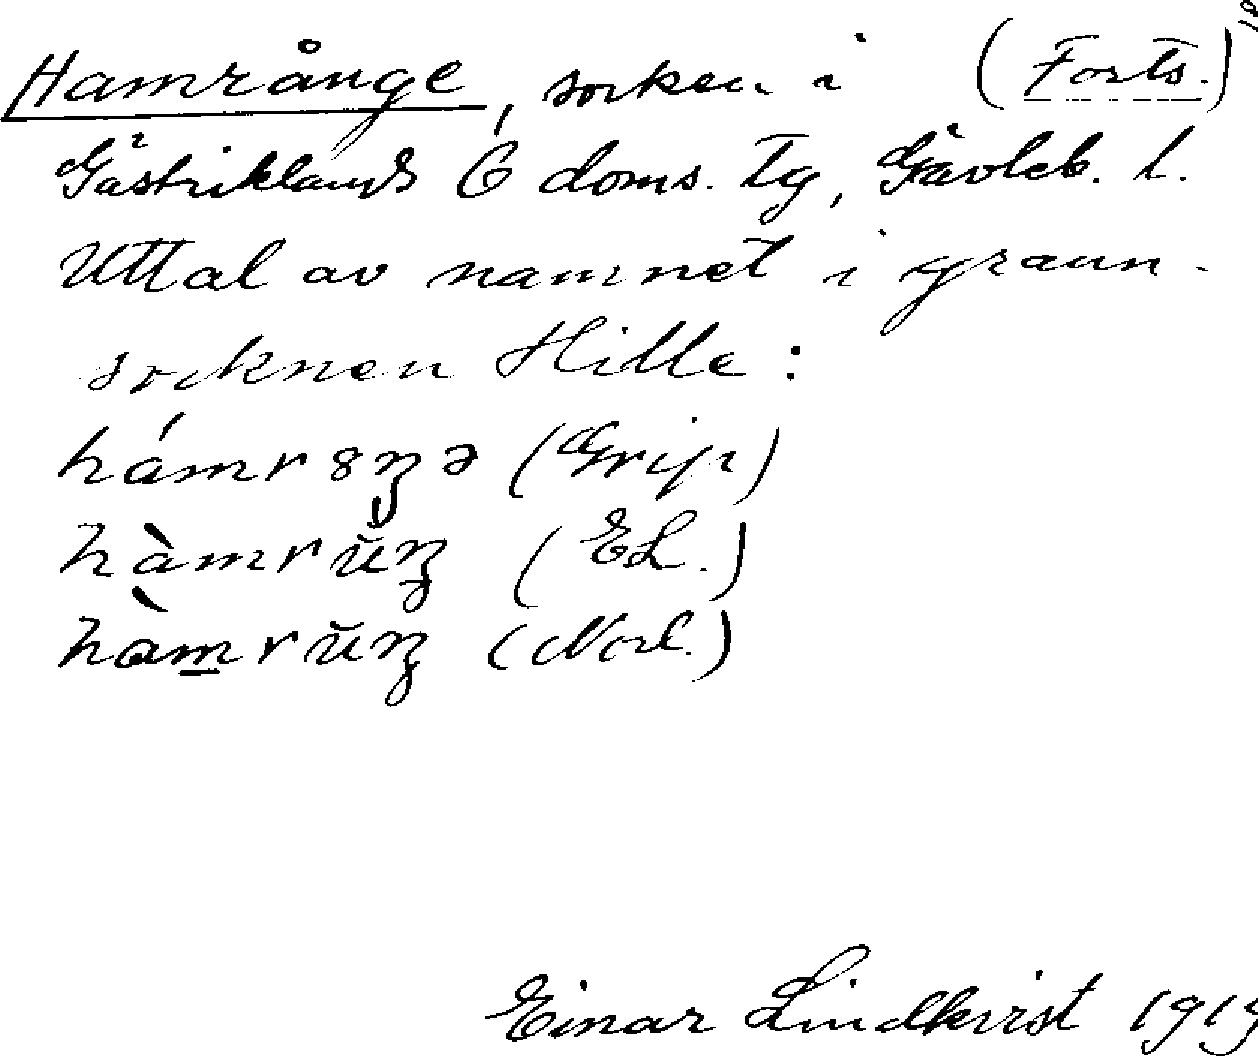 Hamrånge, socken i (Forts.)
Gästriklands Ö doms. tg, Gävleb. l.
Uttal av namnet i grann-
socknen Hille:
hámr8ŋə (Grip)
hàmrŭŋ (EL.)
hàmrŭŋ (Norl.)
Einar Lindkvist 1919